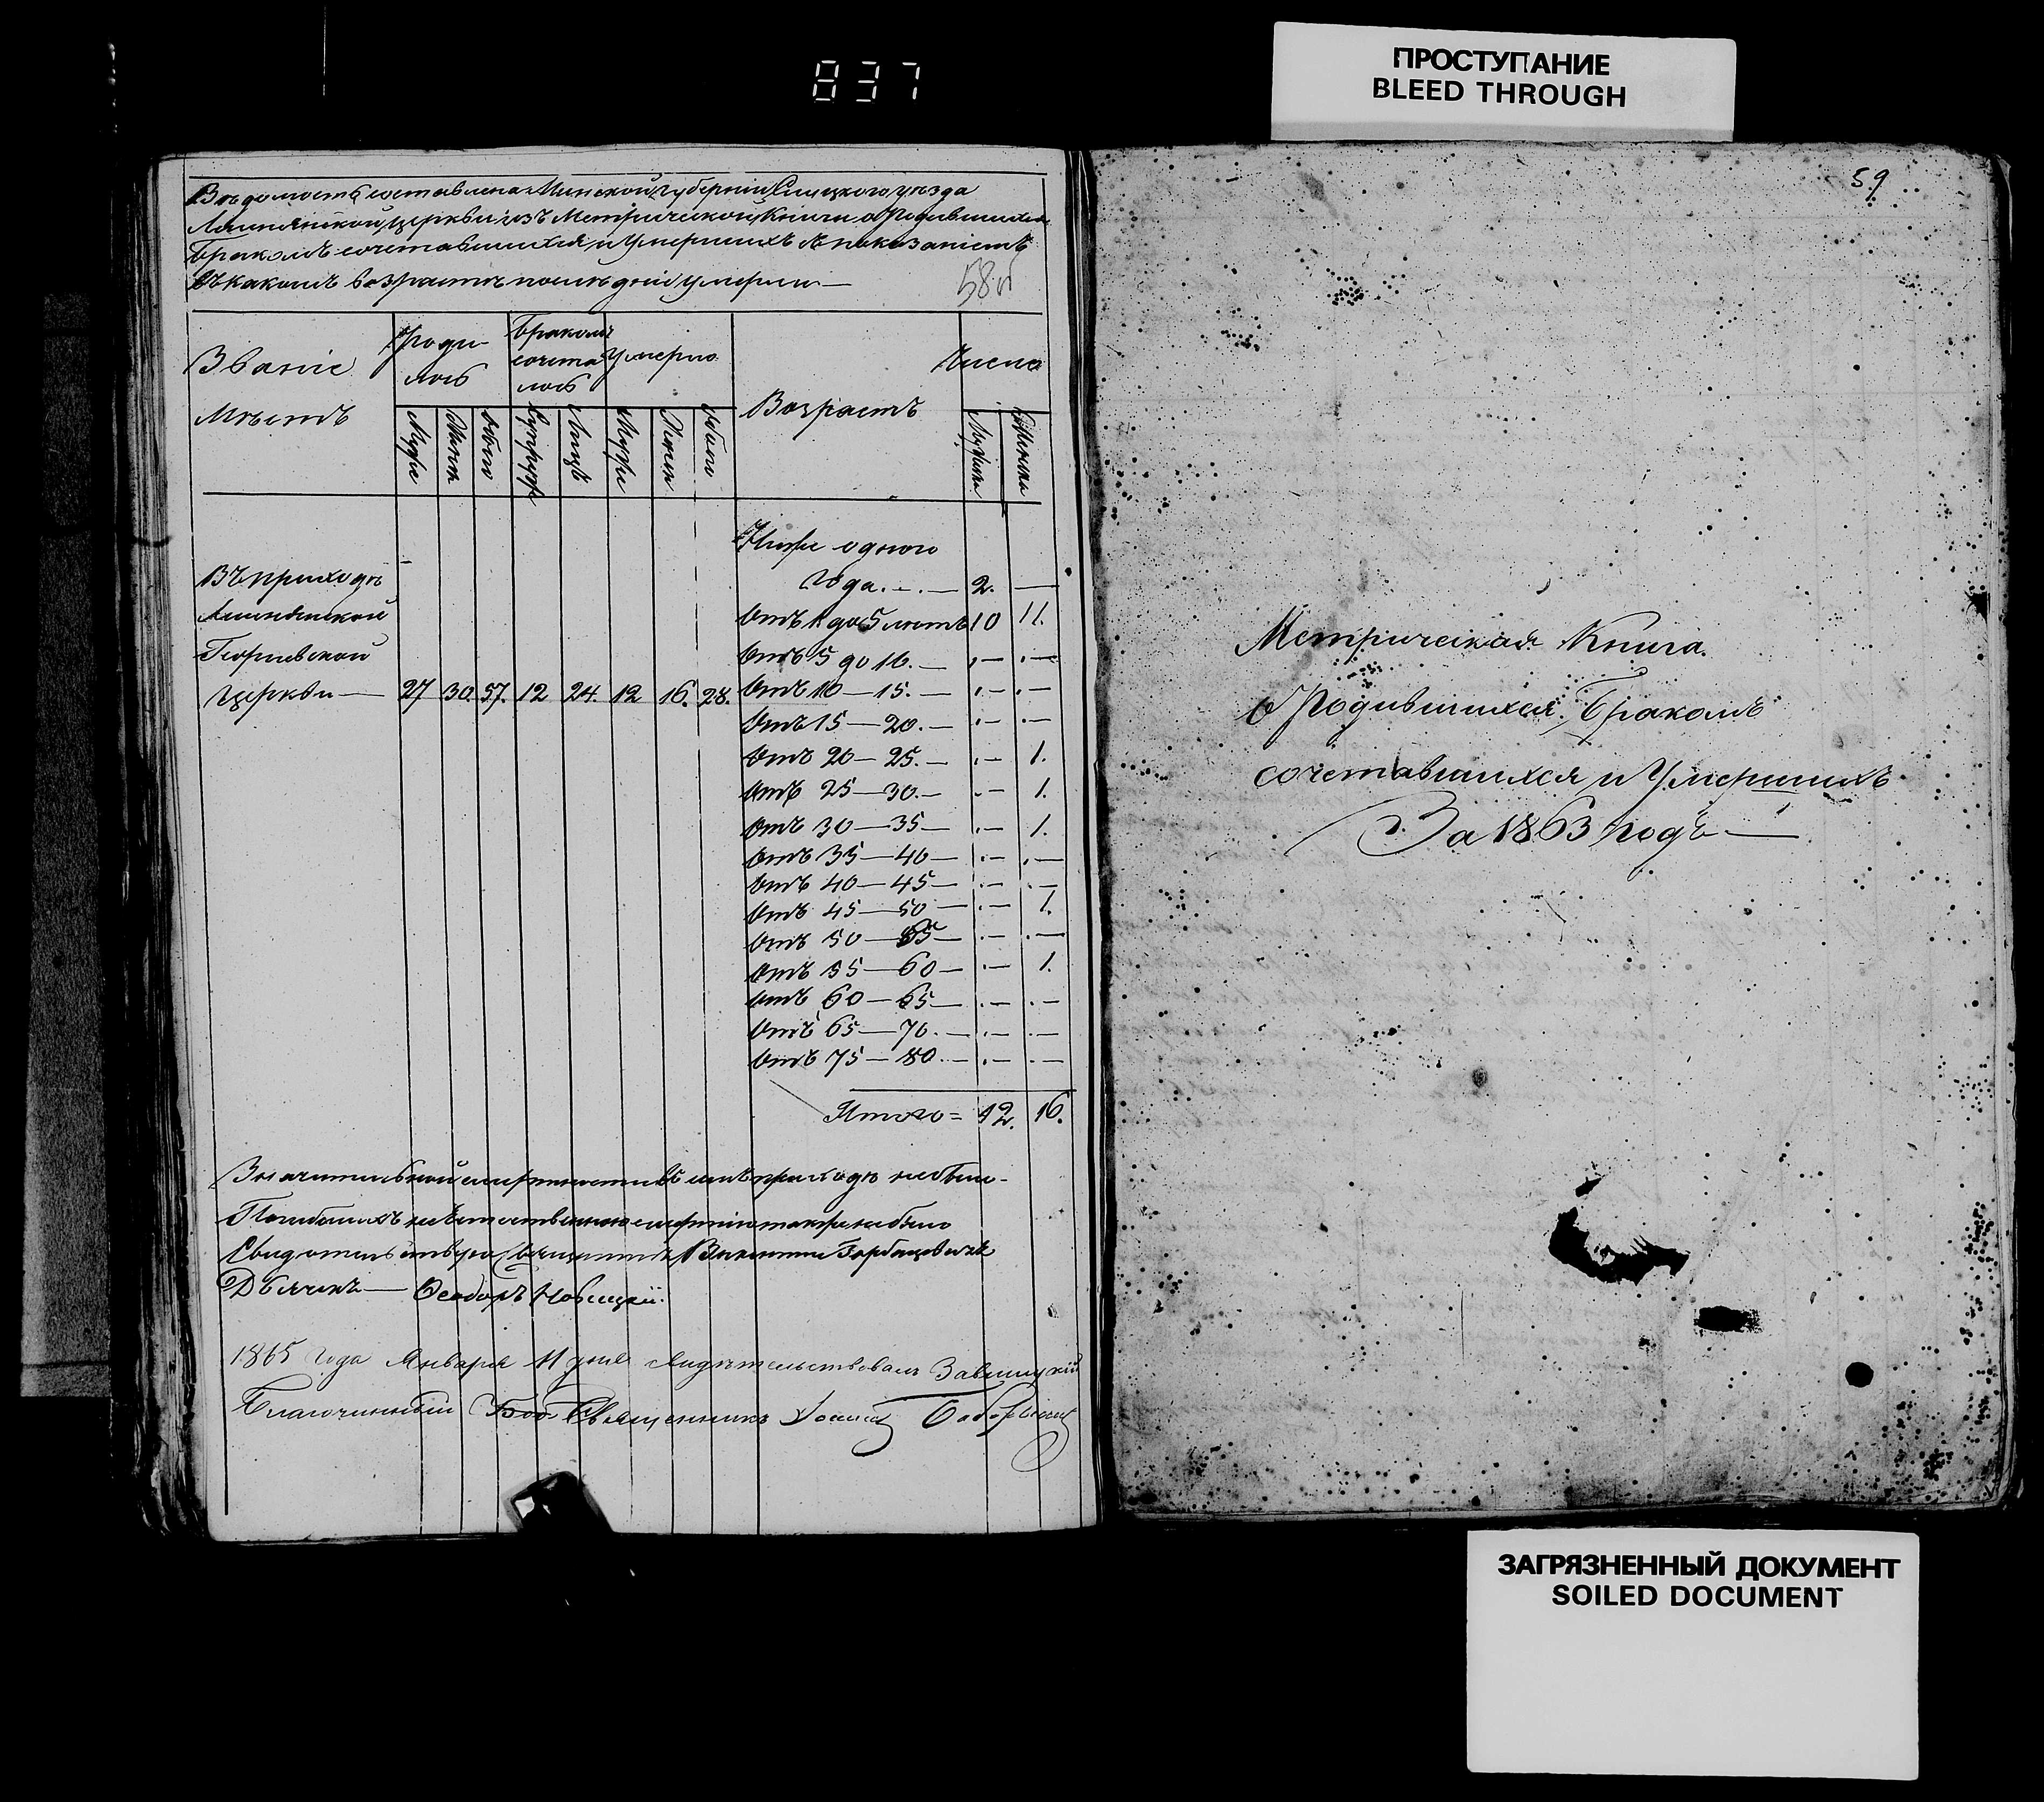 837
ПРОСТУПАНИЕ
BLEED THROUGH
Вѣдомость составлена Минской Губерніи Слуцкаго уѣзда
церкви изъ Метрической Книги о Родившихся
Бракомъ сочетавшихся и Умершихъ съ показаніемъ
въ какомъ возрастѣ послѣдніе умерли —
58об
Званіе Мѣстъ
Роди-лось
Бракомъ сочета-лось
Умерло
Возрастъ
Число
Муж Женск Обоего Супруж Лицъ Муж Женск Обоего
Ниже одного
года. — 2. —
Въ приходѣ
Отъ 1 до 5 лѣтъ 10 11.
Георгіевской
Отъ 5 до 10. — — —
церкви — 27 30. 57. 12 24. 12 16. 28. Отъ 10 — 15. — — —
Отъ 15 — 20. — — —
Отъ 20 — 25. — — 1.
Отъ 25 — 30. — — 1.
Отъ 30 — 35 — — 1.
Отъ 35 — 40 — — —
Отъ 40 — 45 — — —
Отъ 45 — 50 — — 1.
Отъ 50 — 55 — — —
Отъ 55 — 60 — — 1.
Отъ 60 — 65 — — —
Отъ 65 — 70. — — —
Отъ 75 — 80. — — —
Итого = 12. 16.
Значительной смертности въ семъ приходѣ небыло
Погибшихъ неестественною смертію также небыло
Священникъ Горбацевичъ
Дьячекъ — Ѳеодоръ Новицкій.
1865 года Января 11 дня свидѣтельствовалъ
Благочинный Священникъ
59
Метрическая Книга
о Родившихся, Бракомъ
сочетавшихся и Умершихъ
За 1863 годъ —
ЗАГРЯЗНЕННЫЙ ДОКУМЕНТ
SOILED DOCUMENT